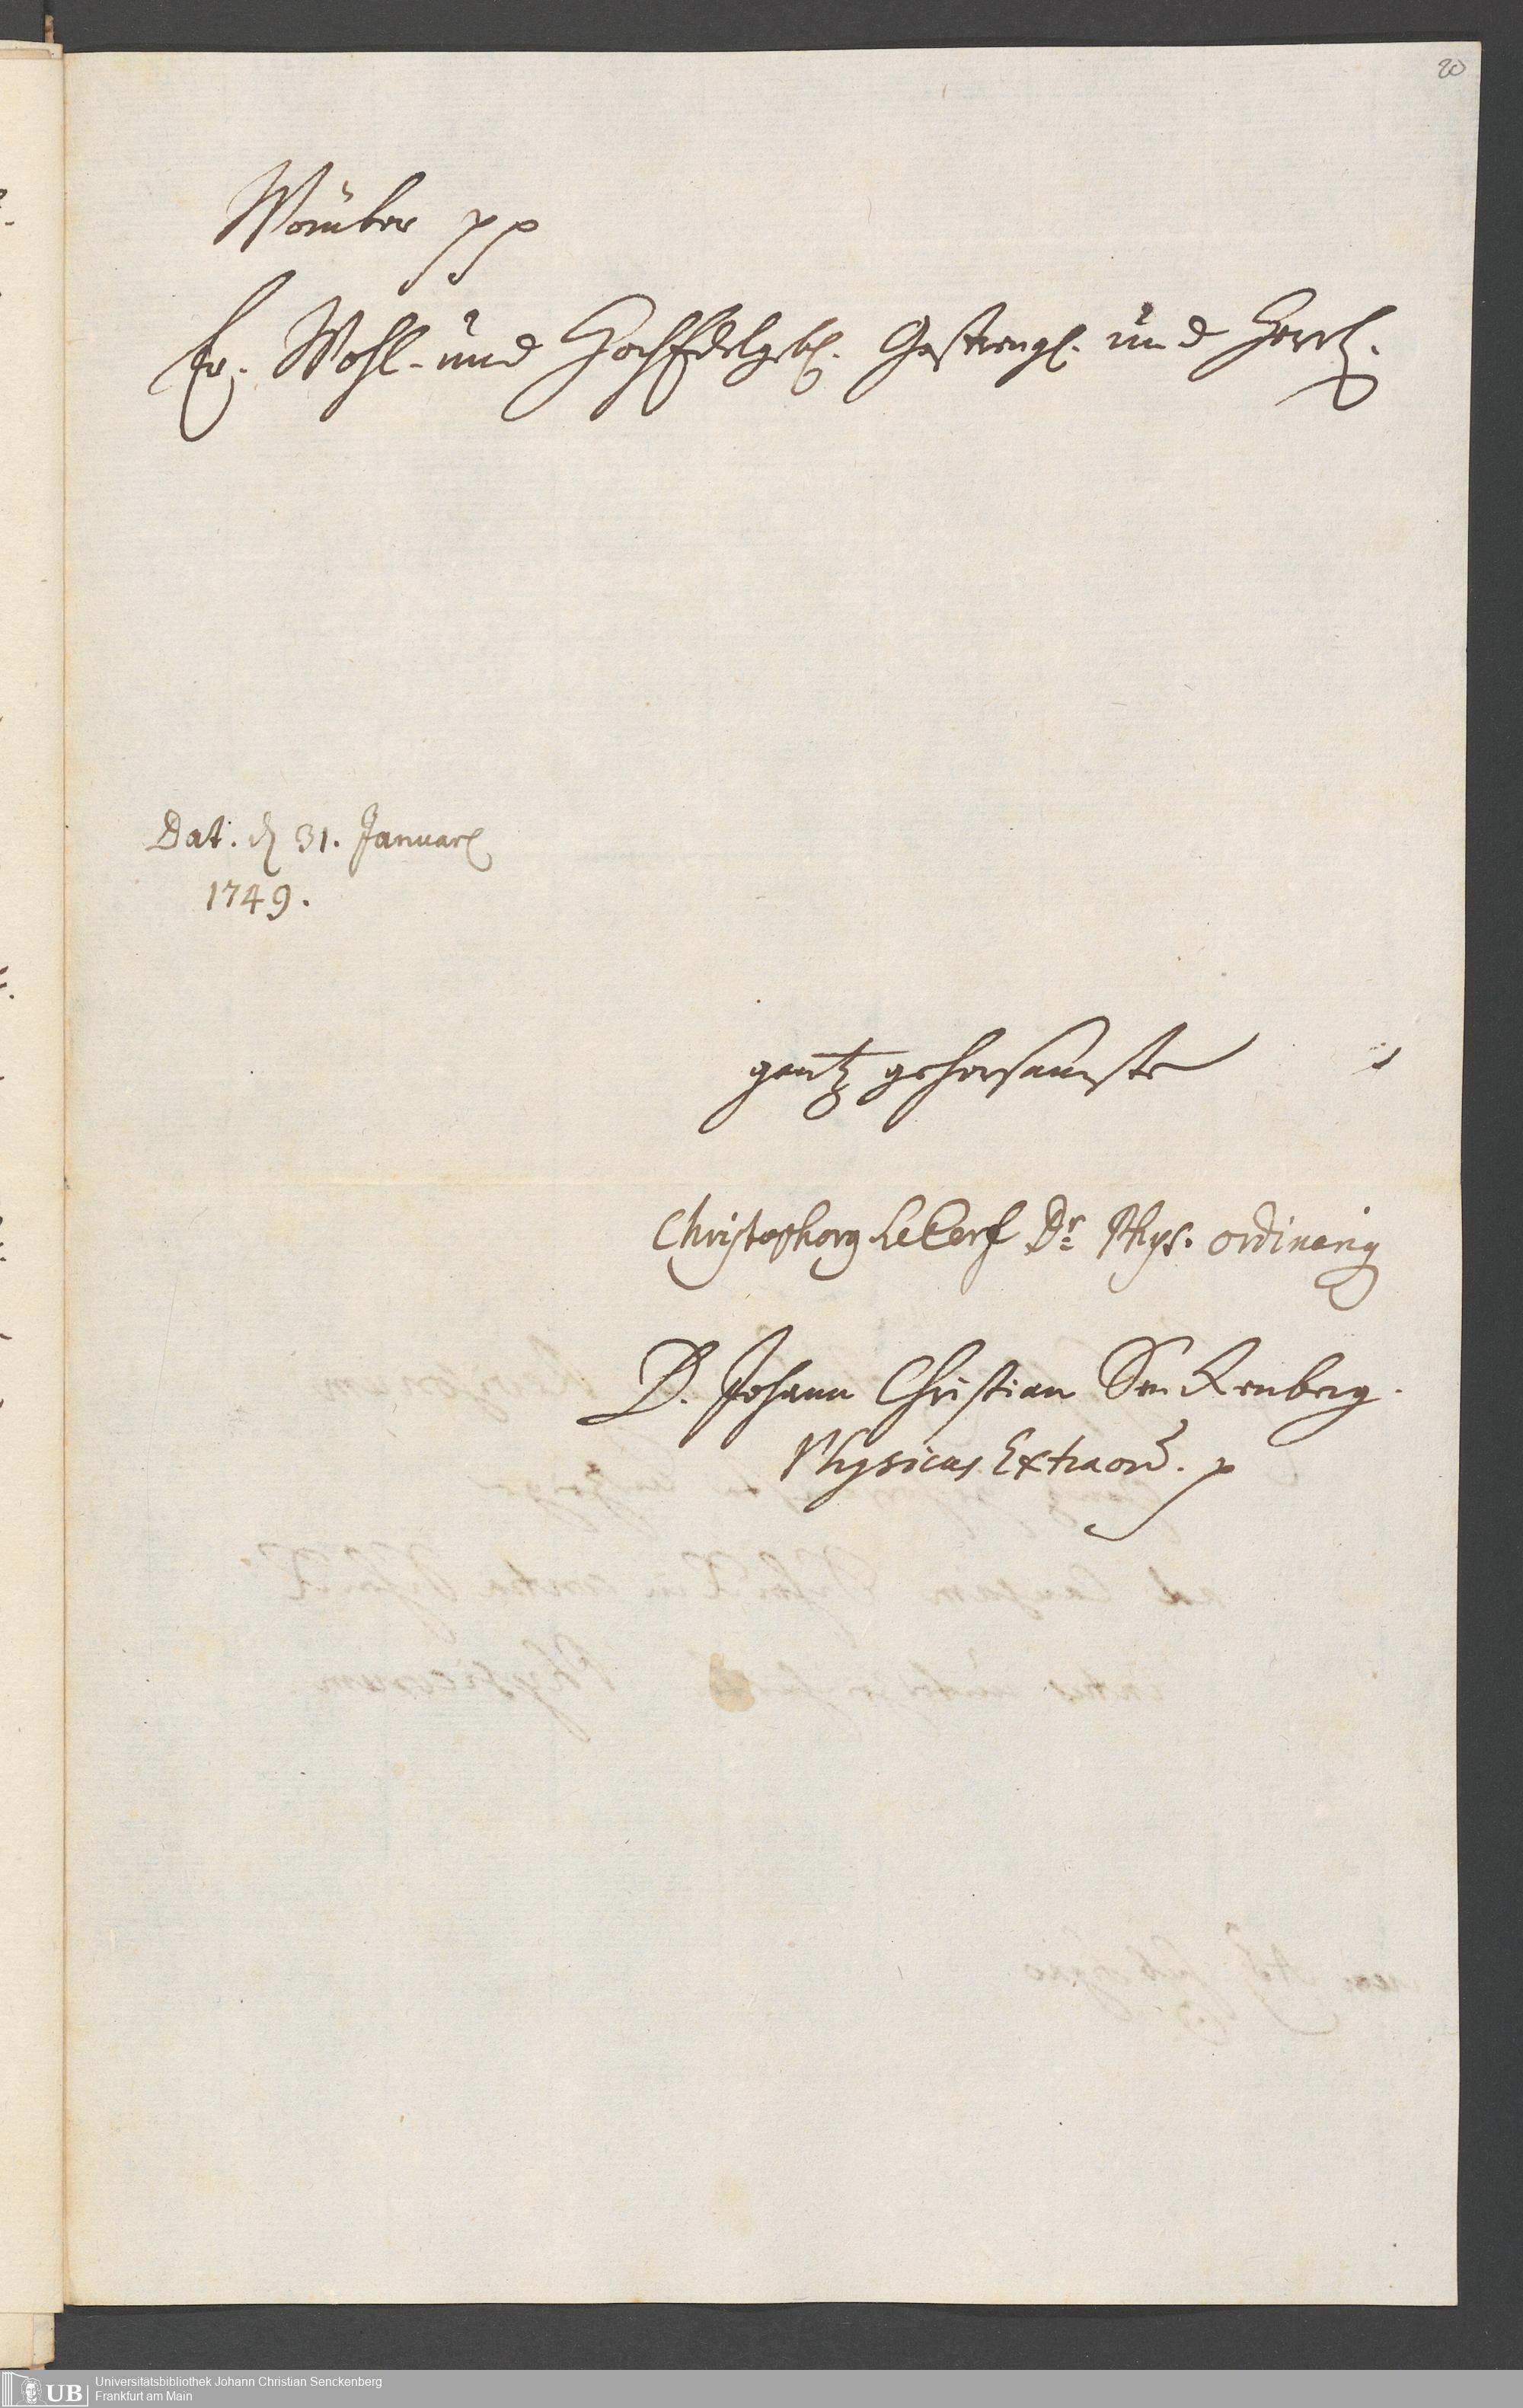 20
Worüber pp
Ew. Wohl- und HochEdelgeb. Gestrengl. und Herrl.
Dat. d 31. Januar
1749.
gantz gehorsamste
Christophorg LeCerf Dr. Phys. ordinarig
D. Johann Christian Senckenberg.
Physicus Extraord. p
UB
Universitätsbibliothek Johann Christian Senckenberg
Frankfurt am Main